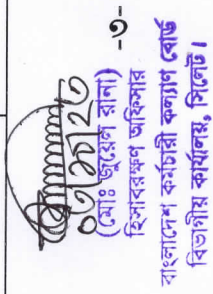 (মোঃ জুয়েল রানা)
হিসাবরক্ষণ অফিসার
বাংলাদেশ কর্মচারী কল্যাণ বোর্ড
বিভাগীয় কার্যালয়, সিলেট।
-৩-